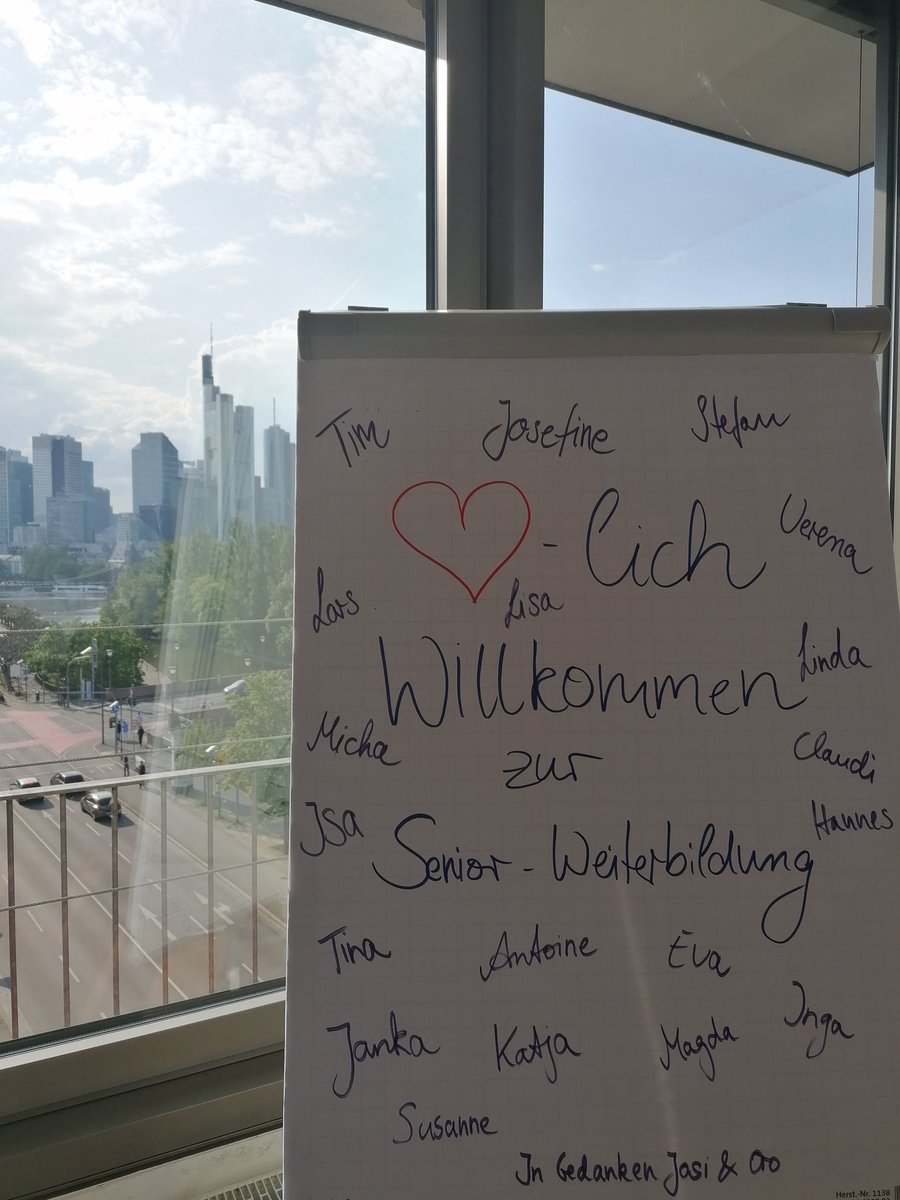 Tim Josefine Stefan
-lich
Verena
Lars Lisa
Willkommen
Linda
Micha
zur
Claudi
Isa
Hannes
Senior-Weiterbildung
Tina Antoine Eva
Janka Katja Magda Inga
Susanne
In Gedanken Josi & Oro
Herst.-Nr. 1138